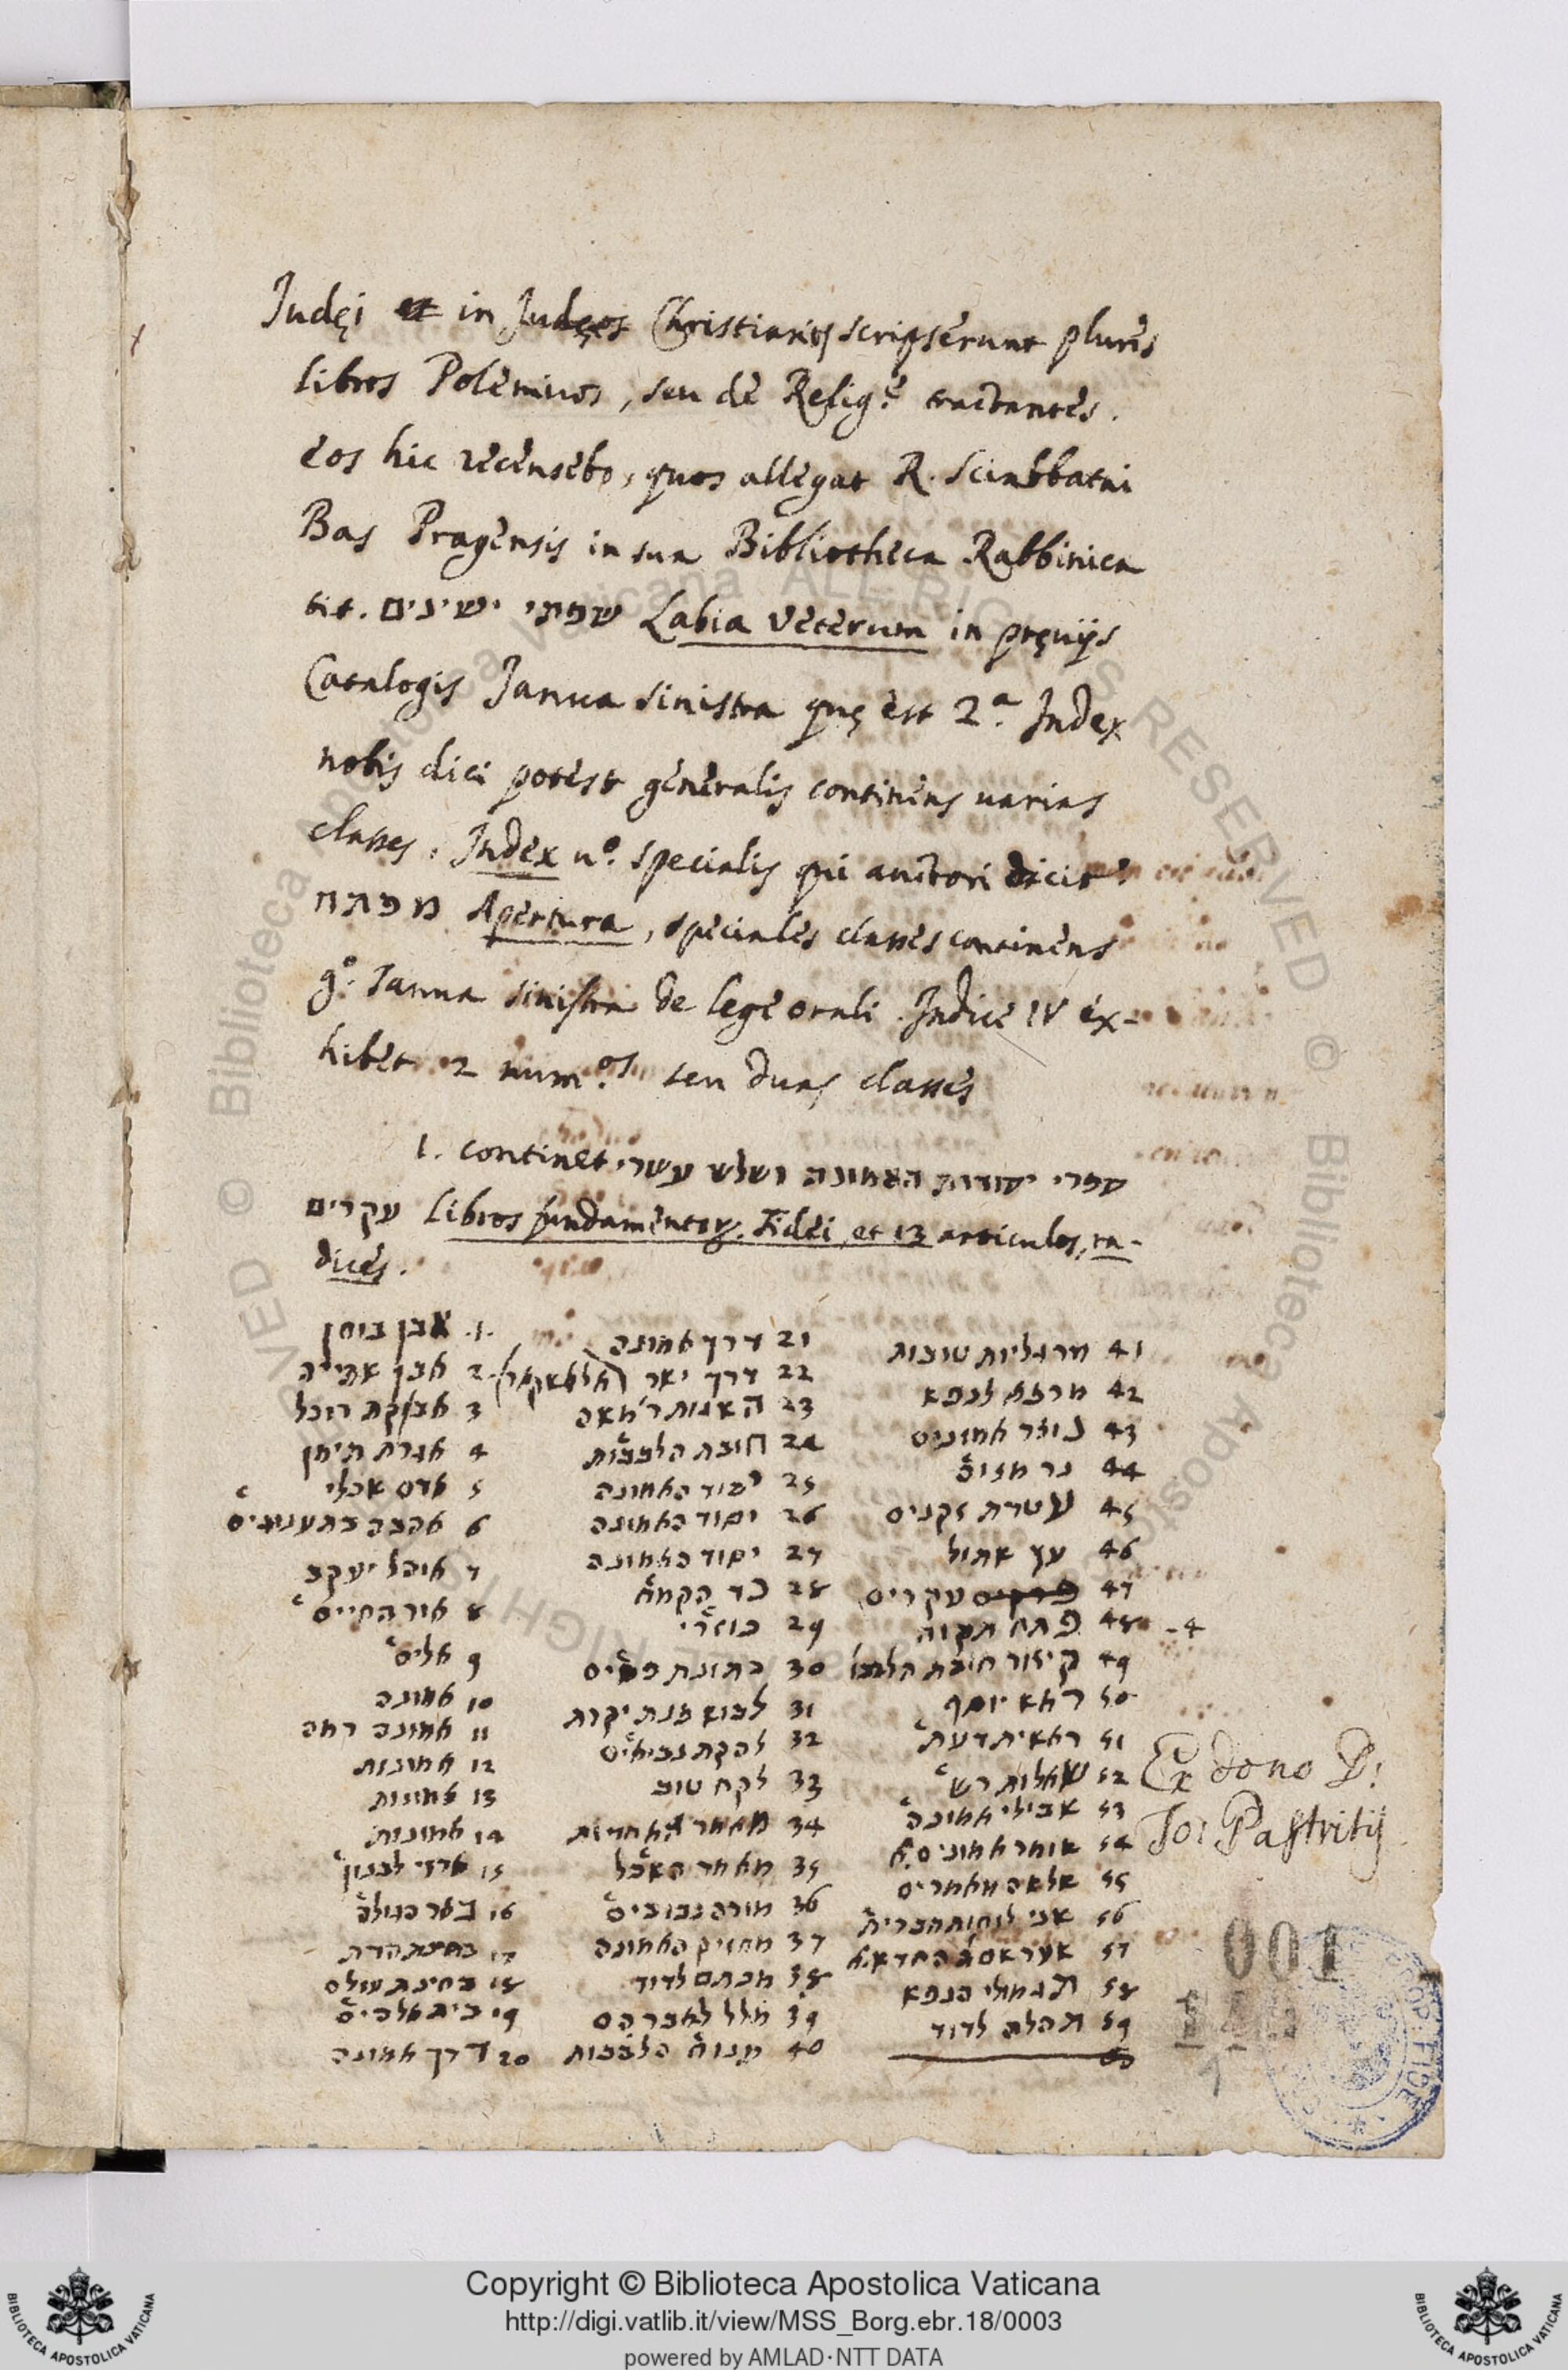 Judęi et in Judęos Christianos scripserunt plures
libros Polemicos, seu de Relig.e tractantes.
eos hic recensebo, quos allegat R. Sciabbatai
Bas Pragensis in sua Bibliotheca Rabbinica
tit. שפתי ישינים Labia veterum in pręviis
Catalogis Janua sinistra quę est 2.a Index
nobis dici potest generalis continens varias
classes. Index v.o specialis qui auctori dicit
מפתח Apertura, speciales classes continens
g.o Janua sinistra de lege orali. Indice IV ex-
hibet 2 num.os seu duas classes
1. continet ספרי יסודות האמונה ושלש עשרי
עקרים Libros fundamentor. Fidei, et 13 articulos, ra-
dices.
1. אבן בוחן
2 אבן
3 אבקת רוכל
4 אגרת תימן
5
6 אהבה בתענוגים
7 אוהל יעקב
8 אור החיים
9 אלים
10 אמונה
11 אמונה רמה
12 אמונות
13 אמונות
14 אמונות
15 ארזי לבנון
16 באר הגולה
17 בחינת הדת
18 בחינת עולם
19 בית אלהים
20 דרך אמונה
21 דרך אמונה
22 דרך
23
24 חובת הלבבות
25 יסוד האמונה
26 יסוד האמונה
27 יסוד האמונה
28 כד הקמח
29 כוזרי
30 כתונת פסים
31
32 להקת נביאים
33 לקח טוב
34 מאמר האחדות
35 מאמר השכל
36 מורה נבוכים
37 מחזיק האמונה
38 מכתם לדוד
39
40 הלבבות
41 מרגליות טובות
42 מרפא לנפש
43 נוצר אמונים
44 נר מצוה
45 עטרת זקנים
46 עץ שתול
47 עקרים
48 פתח תקוה -4
49 קיצור חובת הלבבו
50 יוסף
51 ראשית דעת
52 שאלות
53 שבילי אמונה
54 שומר אמונים
55 שלשה מאמרים
56 שני לוחות הברית
57
58 תגמולי הנפש
59 תהלה לדוד
60
Ex dono D:
Jo: Pastritij
001
Copyright © Biblioteca Apostolica Vaticana
http://digi.vatlib.it/view/MSS_Borg.ebr.18/0003
powered by AMLAD·NTT DATA
BIBLIOTECA APOSTOLICA VATICANA
BIBLIOTECA APOSTOLICA VATICANA